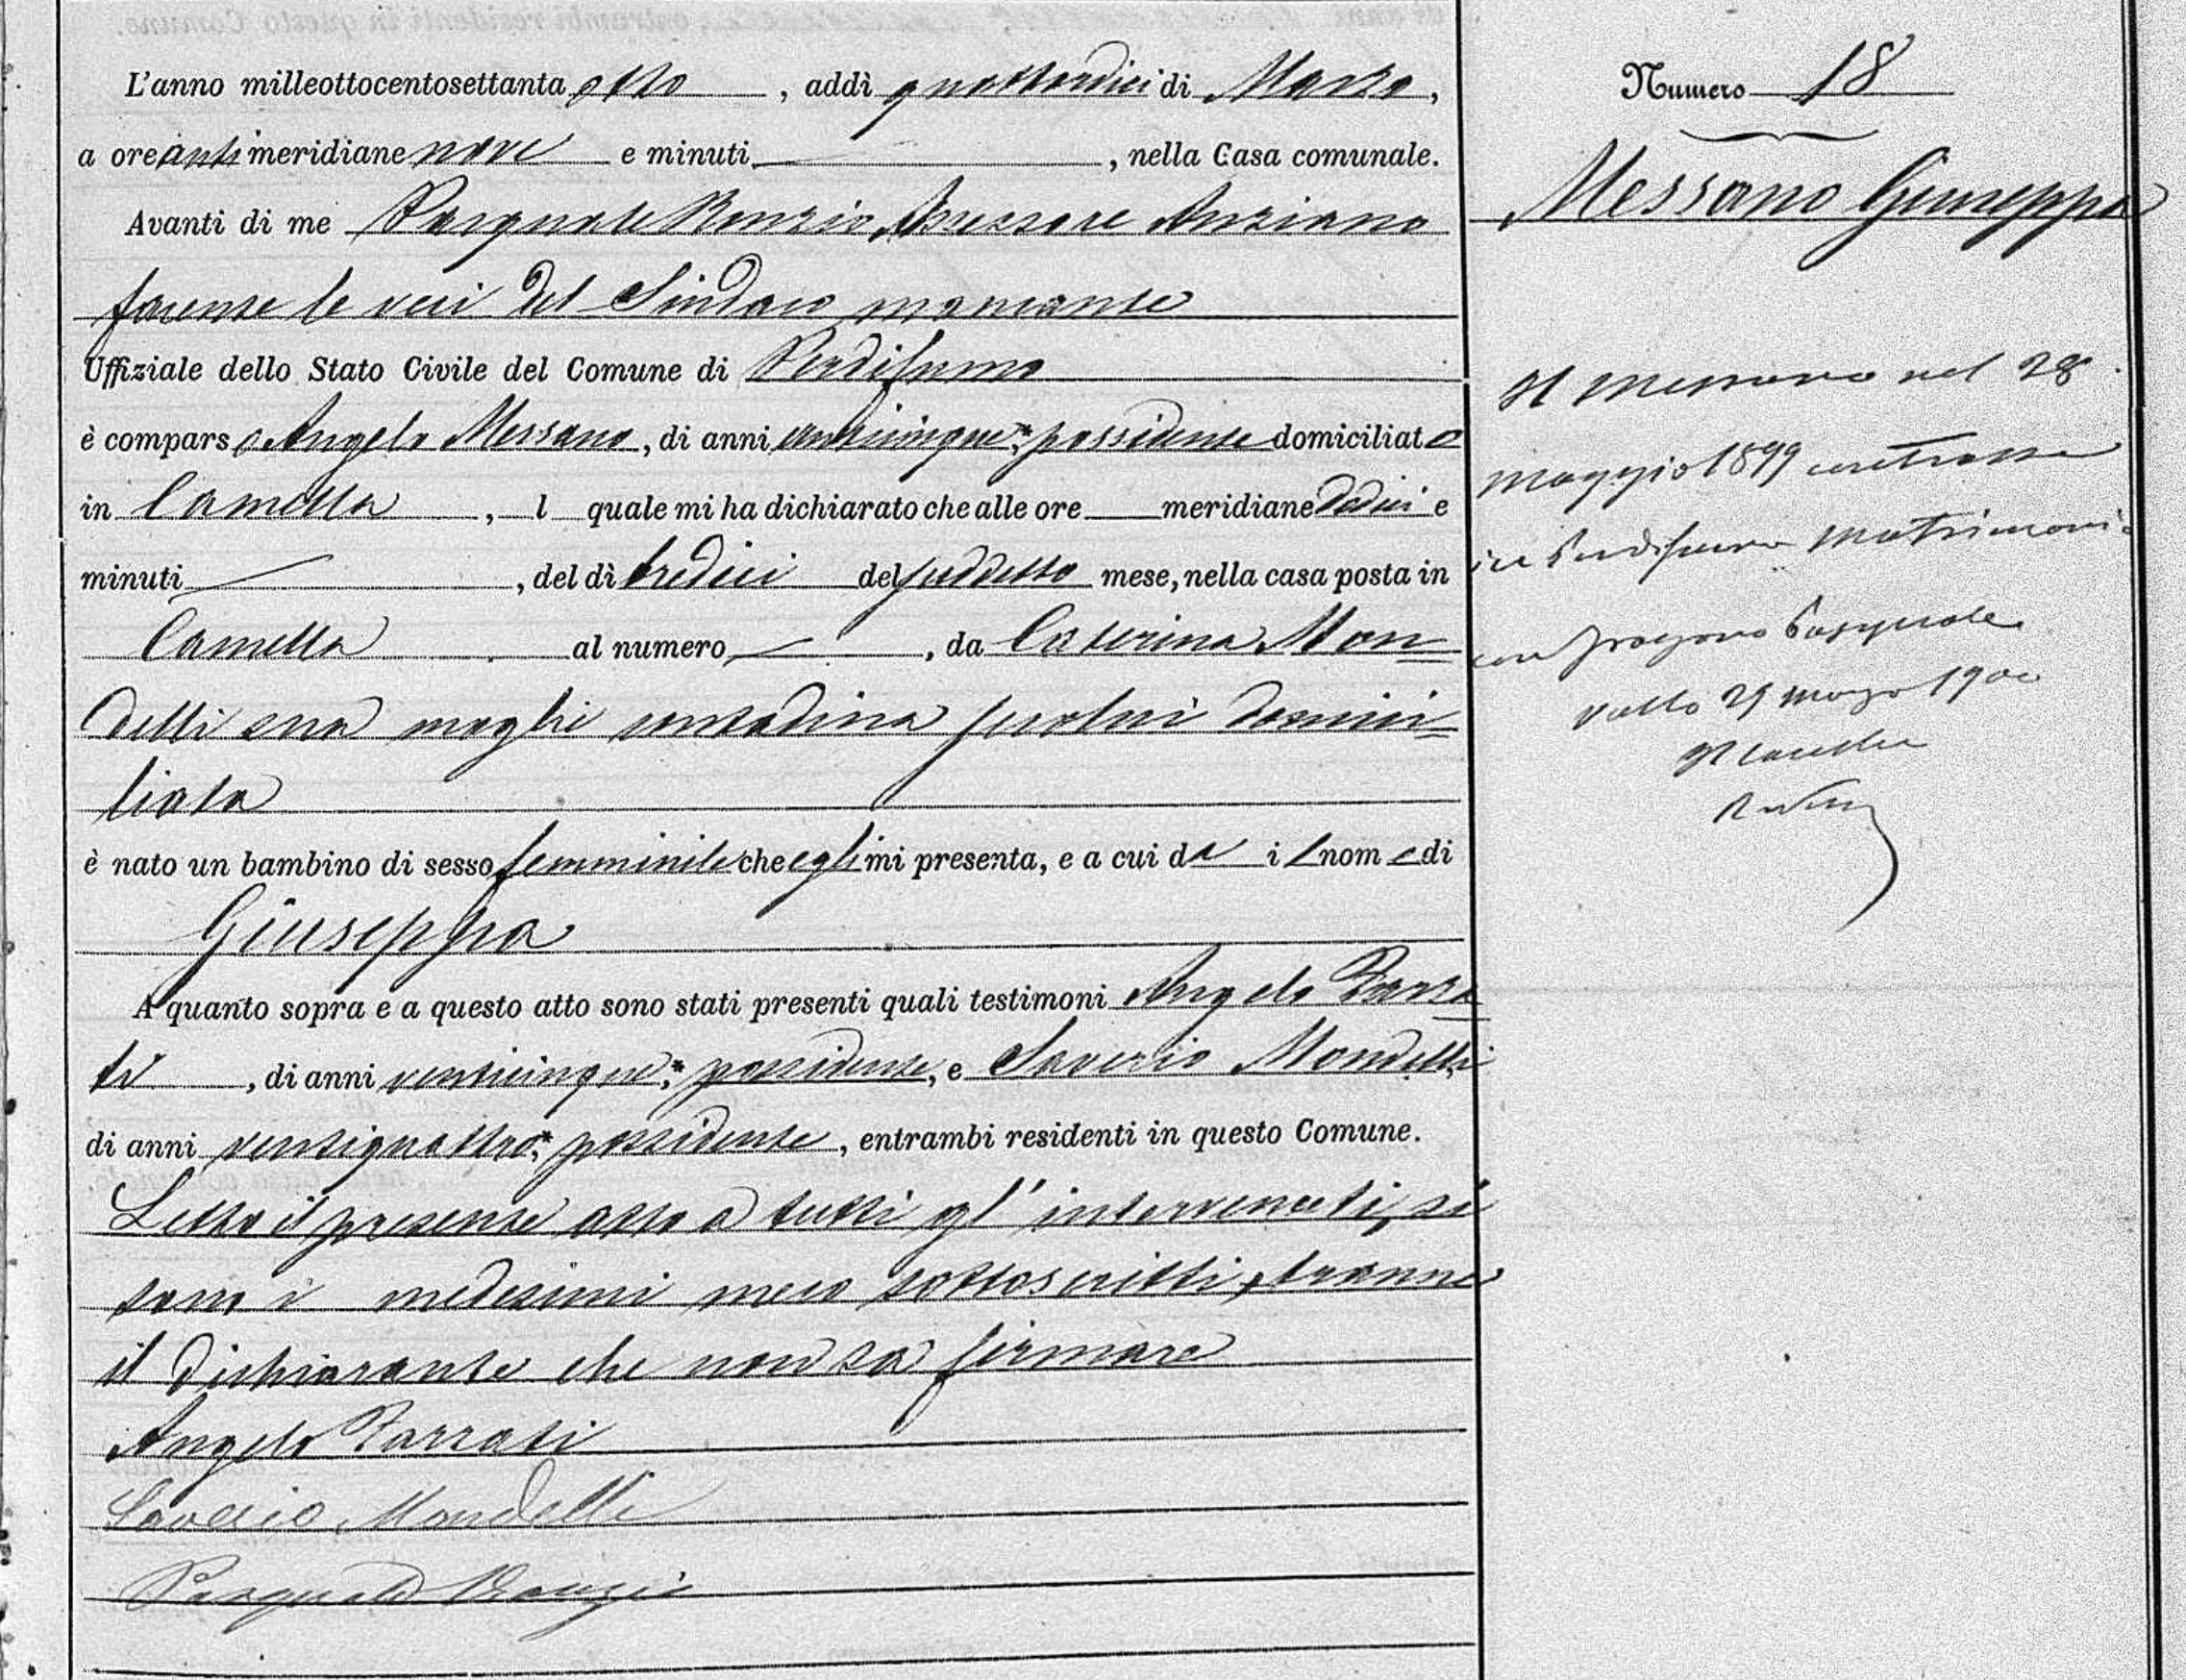 L'anno milleottocentosettanta otto, addì quattordici di Marzo,
a ore anti meridiane nove e minuti, nella Casa comunale.
Avanti di me Pasquale Ronzio Assessore Anziano
facente le veci del Sindaco mancante
Uffiziale dello Stato Civile del Comune di Perdifumo
è comparso Angelo Messano, di anni venticinque, possidente domiciliato
in Camella, l quale mi ha dichiarato che alle ore meridiane dodici e
minuti, del dì tredici del suddetto mese, nella casa posta in
Camella al numero, da Caterina Mon=
delli sua moglie contadina seco lui domici=
liata
è nato un bambino di sesso femminile che egli mi presenta, e a cui dà il nome di
Giuseppa
A quanto sopra e a questo atto sono stati presenti quali testimoni Angelo
, di anni venticinque, possidente, e Saverio Mondelli
di anni ventiquattro, possidente, entrambi residenti in questo Comune.
Letto il presente atto a tutti gl'intervenuti, si
sono i medesimi meco sottoscritti, tranne
il dichiarante che non sa firmare
Angelo
Saverio Mondelli
Pasquale Ronzio
Numero 18
Messano Giuseppa
Messano nel 28
maggio 1899 contrasse
in Perdifumo matrimonio
con Pasquale
Vallo 29 1900
Il